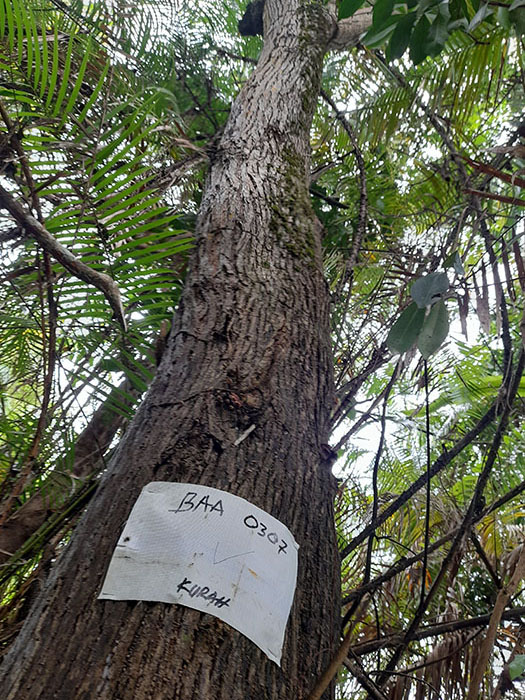 BAA 0307
KURAH